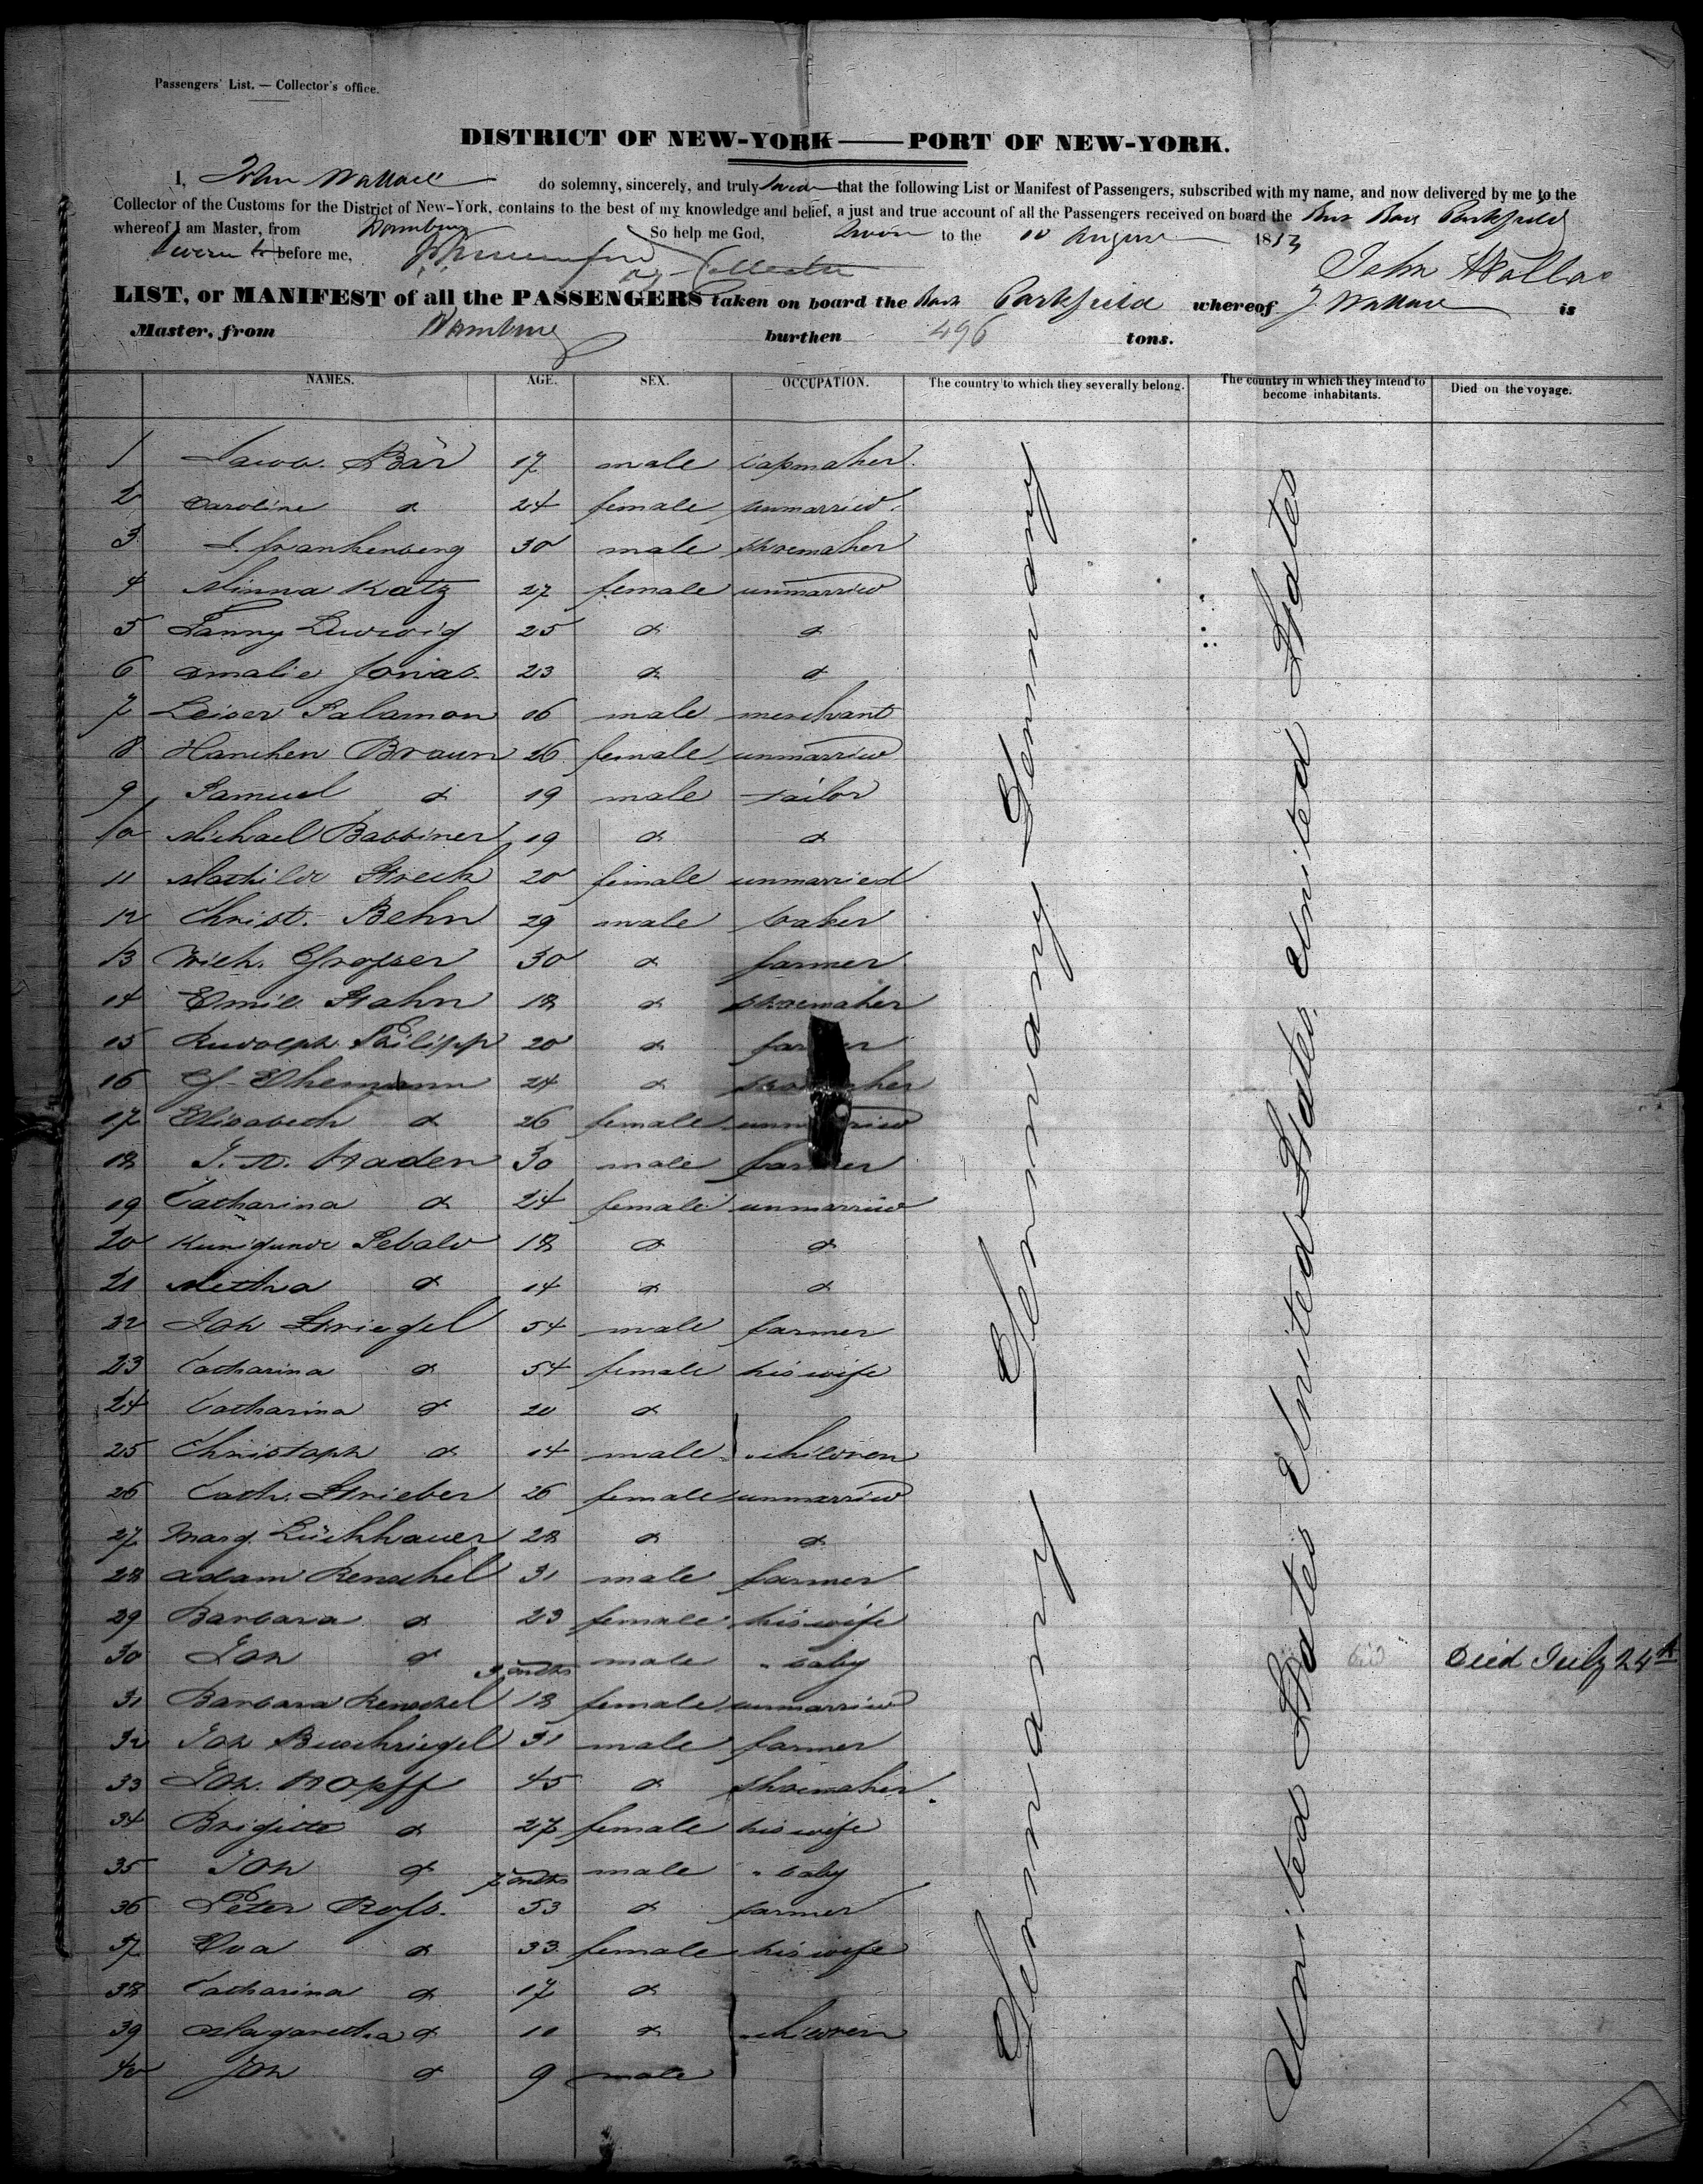 Passengers' List. — Collector's office.
DISTRICT OF NEW-YORK —— PORT OF NEW-YORK.
I, John Wallace do solemny, sincerely, and truly swear that the following List or Manifest of Passengers, subscribed with my name, and now delivered by me to the
Collector of the Customs for the District of New-York, contains to the best of my knowledge and belief, a just and true account of all the Passengers received on board the Parkfield
whereof I am Master, from Hamburg So help me God, to the 10 August 1853
before me, Collector John Wallace
LIST, or MANIFEST of all the PASSENGERS taken on board the Bark Parkfield whereof J. Wallace is
Master, from Hamburg burthen 496 tons.
NAMES. AGE. SEX. OCCUPATION. The country to which they severally belong. The country in which they intend to become inhabitants. Died on the voyage.
1 Jacob. Bär 17 male capmaker.
2 Caroline d 24 female unmarried.
3 J. Frankenberg 30 male shoemaker
4 Minna Katz 27 female unmarried
5 Fanny Ludwig 25 d d
6 Amalie Jonas. 23 d d
7 Leiser Salamon 16 male merchant
8 Hanchen Braun 26 female unmarried
9 Samuel d 19 male tailor
10 Michael 19 d d
11 Mathilde Streck 20 female unmarried
12 Christ. Behn 29 male baker
13 Grosser 30 d farmer
14 Emil Hahn 18 d shoemaker
15 Rudolph Philipp 20 d farmer
16 G. Ehemann 24 d shoemaker
17 Elisabeth d 26 female unmarried
18 J. N. Haden 30 male farmer
19 Catharina d 24 female unmarried
20 Kunigunde Sebald 18 d d
21 Metha d 14 d d
22 Joh Striegel 54 male farmer
23 Catharina d 54 female his wife
24 Catharina d 20 d
25 Christoph d 14 male children
26 Cath. Strieber 26 female unmarried
27 Marg. Lückhauer 28 d d
28 Adam Renschel 31 male farmer
29 Barbara d 23 female his wife
30 Joh d 9 mths male " baby Died July 24th
31 Barbara Renschel 18 female unmarried
32 Joh Buschriegel 31 male farmer
33 Joh. Hopff 45 d shoemaker.
34 Brigitte d 27 female his wife
35 Joh d 7 mths male " baby
36 Peter Ross. 53 d farmer
37 Eva d 33 female his wife
38 Catharina d 17 d
39 Magaretha d 10 d children
40 Joh d 9 male
Germany Germany Germany Germany
United States United States United States